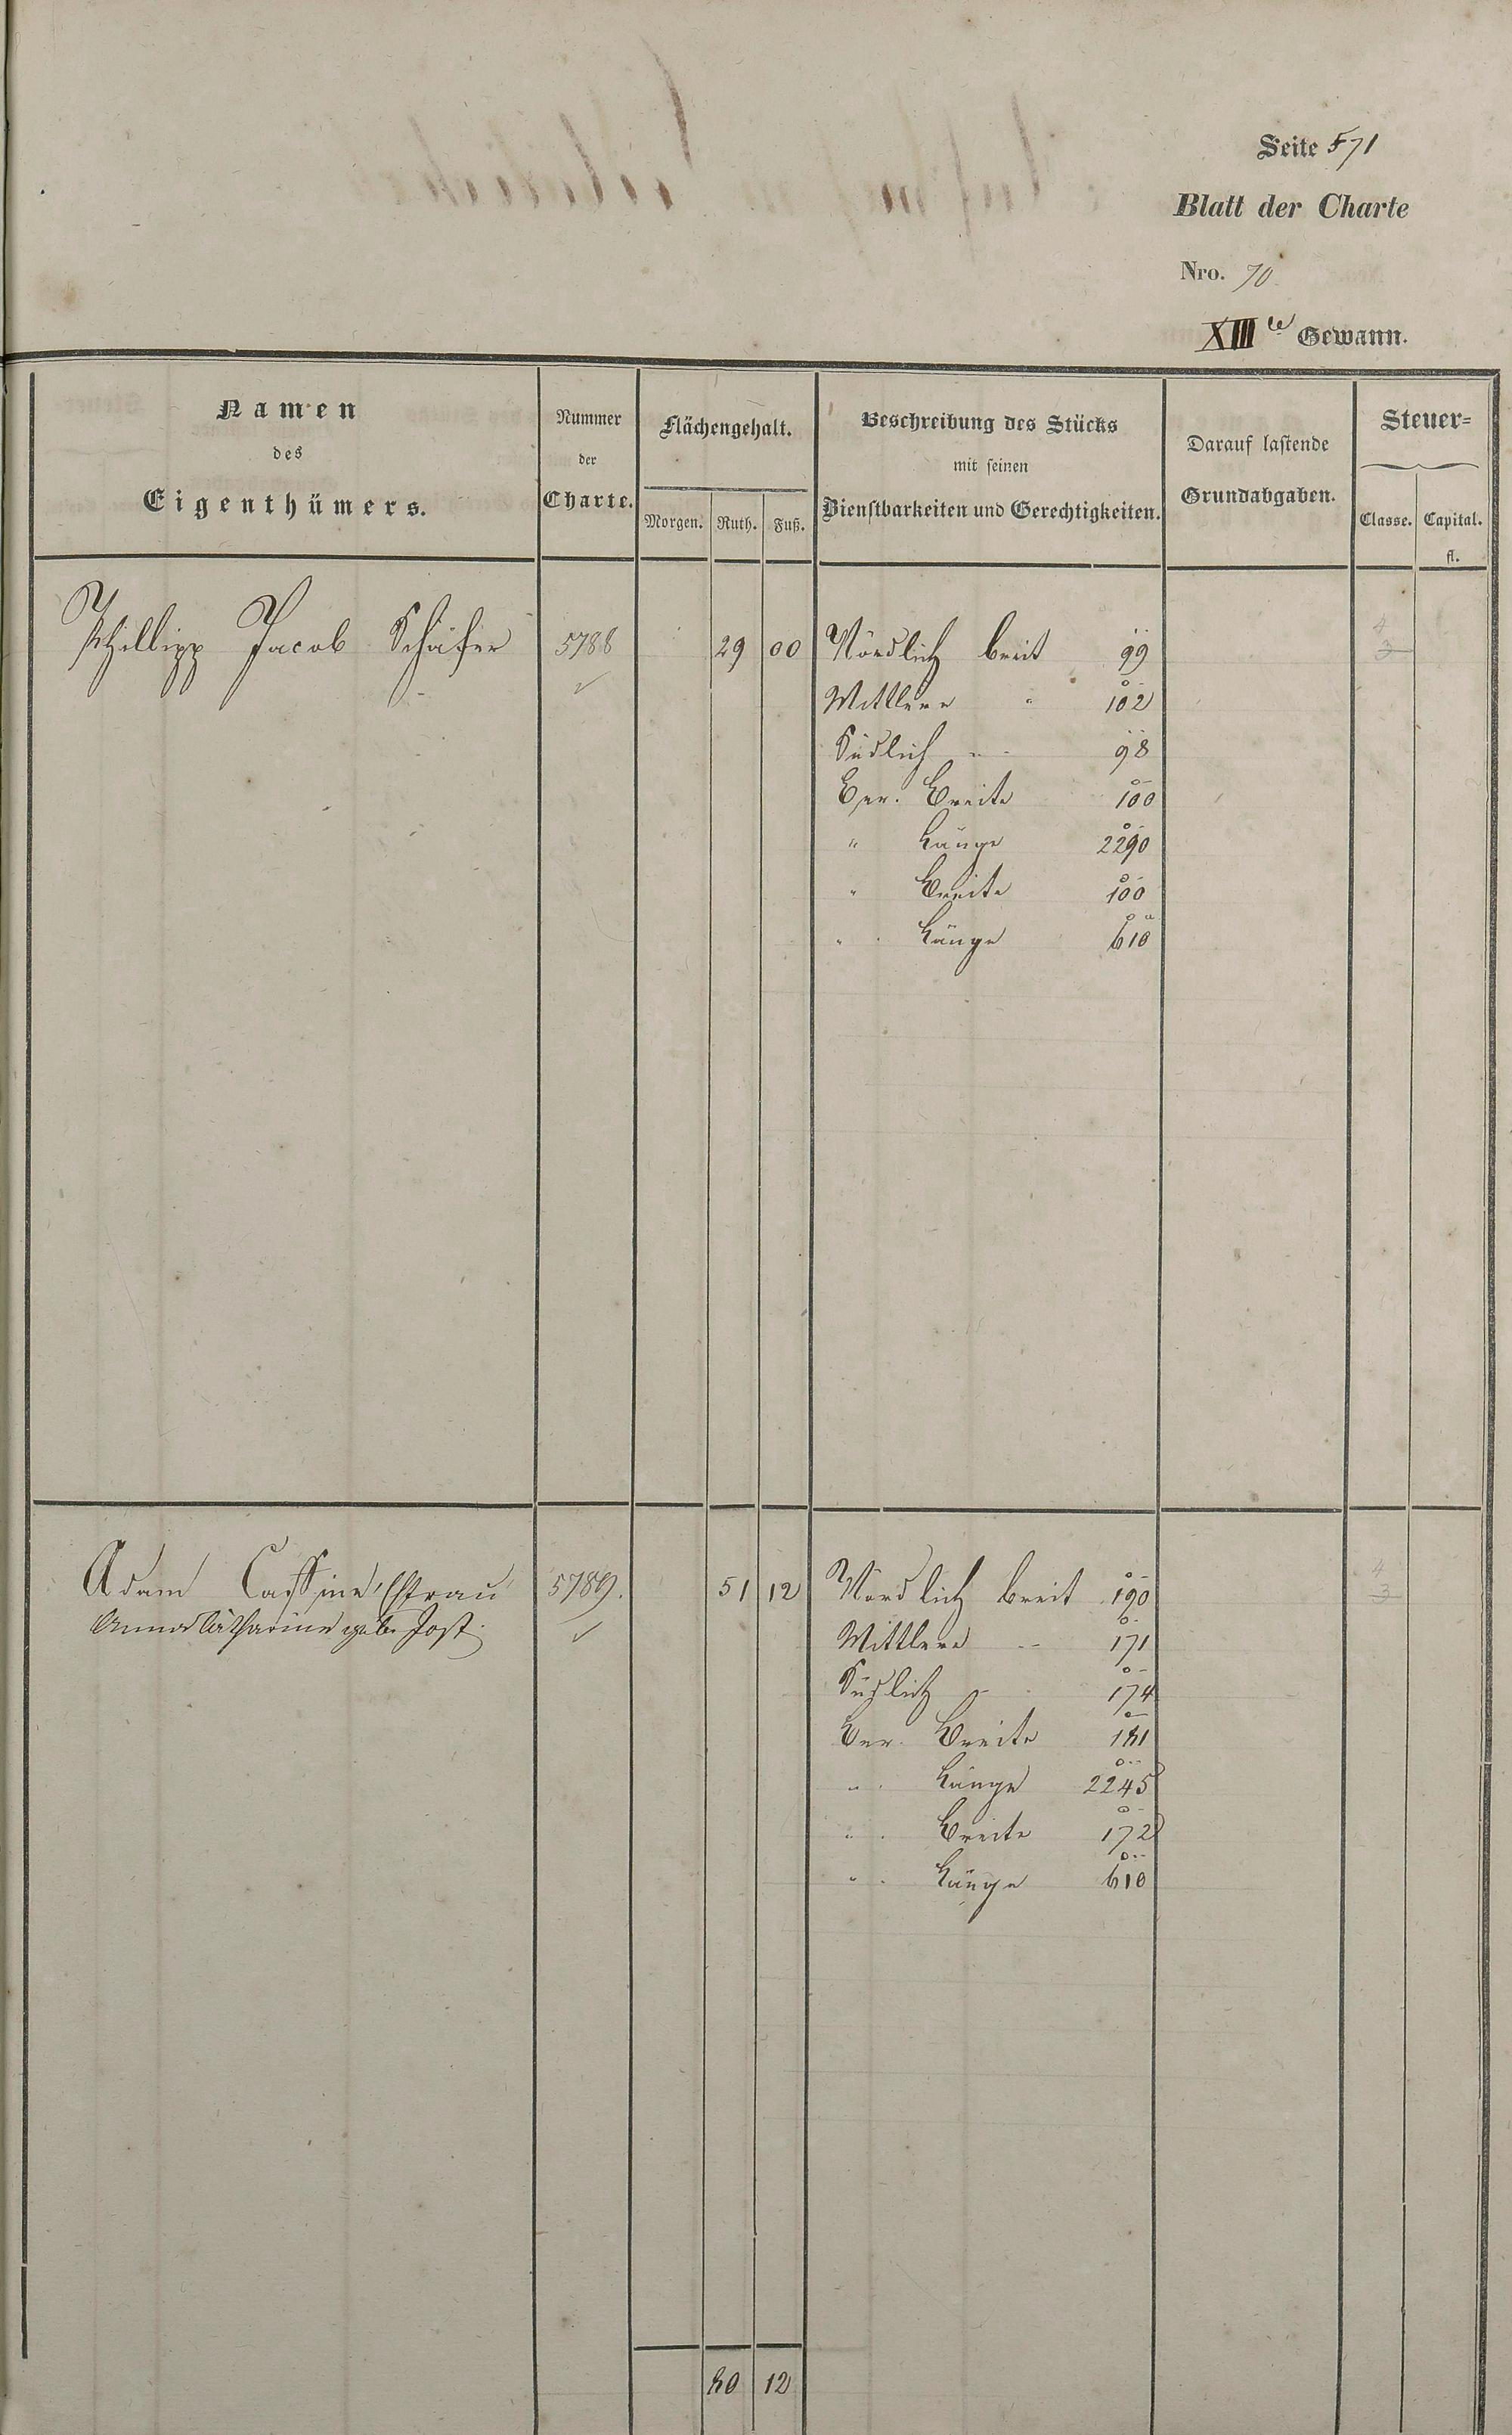 Seite 571
Blatt der Charte
Nro. 70.
XIII te Gewann.
Namen
des
Eigenthümers.
Nummer
der
Charte.
Flächengehalt.
Morgen. Ruth. Fuß.
Beschreibung des Stücks
mit seinen
Dienstbarkeiten und Gerechtigkeiten.
Darauf lastende
Grundabgaben.
Steuer-
Classe. Capital.
fl.
Phillipp Jacob Schäfer 5788 29 00 Nördlich breit 99 4
3
Mittlere " 102
Südlich " 98
Ber. Breite 100
" Länge 2290
" Breite 100
" Länge 610
Adam Cassine' Ehfrau 5789. 51 12 Nördlich breit 190 4
3
Anna Catharine geb. Jost.
Mittlere " 171
Südlich " 174
Ber. Breite 181
" Länge 2245
" Breite 172
" Länge 610
80 12